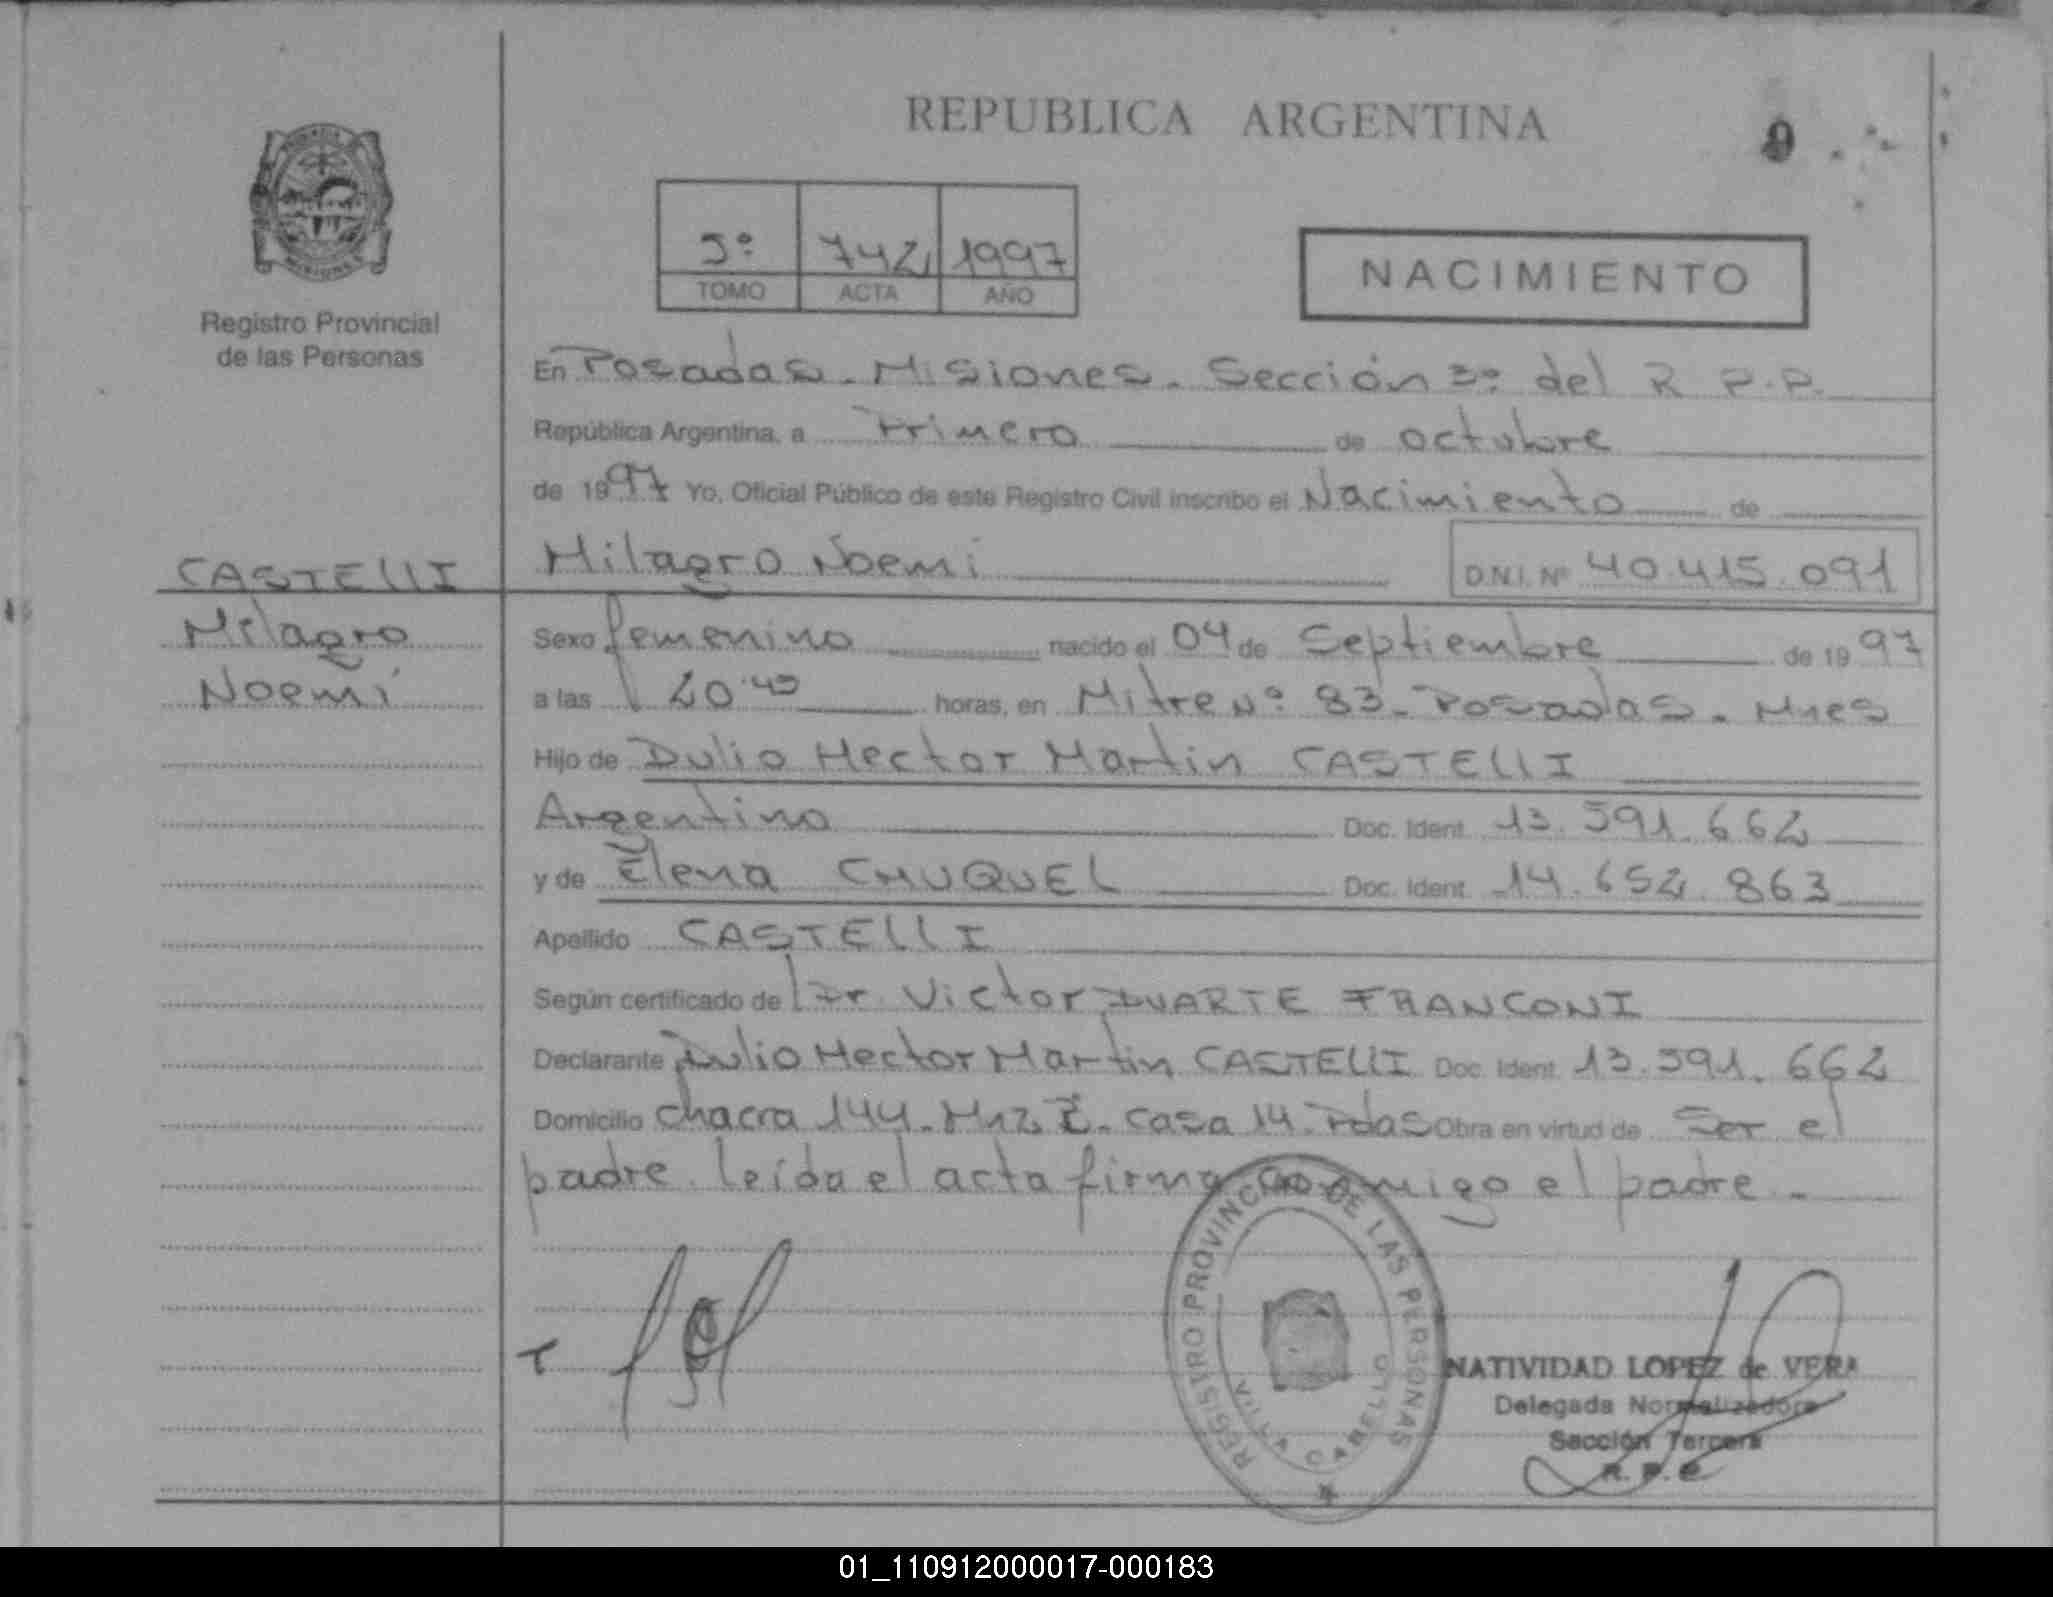 REPUBLICA ARGENTINA
9
5º 742 1997
TOMO ACTA AÑO
NACIMIENTO
Registro Provincial
de las Personas
En Posadas - Misiones - Sección 3º del R.P.P.
República Argentina, a Primero de octubre
de 1997 Yo, Oficial Público de este Registro Civil inscribo el Nacimiento de
CASTELLI
Milagro Noemi
D.N.I. Nº 40.415.091
Milagro
Noemí
Sexo femenino nacido el 04 de Septiembre de 1997
a las 20:45 horas, en Mitre Nº 83 - Posadas - Mnes
Hijo de Dulio Hector Martin CASTELLI
Argentino Doc. Ident. 13.591.662
y de Elena CHUQUEL Doc. Ident. 14.652.863
Apellido CASTELLI
Según certificado de Dr. Victor DUARTE FRANCONI
Declarante Dulio Hector Martin CASTELLI Doc. Ident. 13.591.662
Domicilio chacra 144 - Mnz - casa 14 - Pdas Obra en virtud de Ser el
padre. leída el acta firma conmigo el padre -
REGISTRO PROVINCIAL DE LAS PERSONAS
VILLA CABELLO
NATIVIDAD LOPEZ de VERA
Delegada Normalizadora
Sección Tercera
R. P. P.
01_110912000017-000183